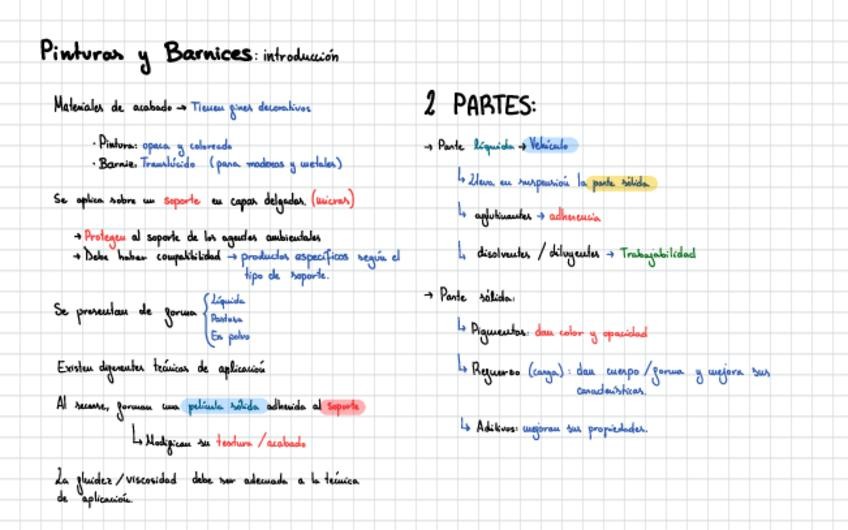 Pinturas y Barnices: introducción
Materiales de acabado → Tienen fines decorativos
· Pintura: opaca y coloreada
· Barniz: Translúcido (para maderas y metales)
Se aplica sobre un soporte en capas delgadas. (micras)
→ Protegen al soporte de los agentes ambientales
→ Debe haber compatibilidad → productos específicos según el
tipo de soporte.
Se presentan de forma { Líquida
Pastosa
En polvo
Existen diferentes técnicas de aplicación
Al secarse, forman una película sólida adherida al soporte
↳ Modifican su textura / acabado
La fluidez / viscosidad debe ser adecuada a la técnica
de aplicación.
2 PARTES:
→ Parte líquida → Vehículo
↳ Lleva en suspensión la parte sólida
↳ aglutinantes → adherencia
↳ disolventes / diluyentes → Trabajabilidad
→ Parte sólida:
↳ Pigmentos: dan color y opacidad
↳ (carga): dan cuerpo / forma y mejora sus
características.
↳ Aditivos: mejoran sus propiedades.